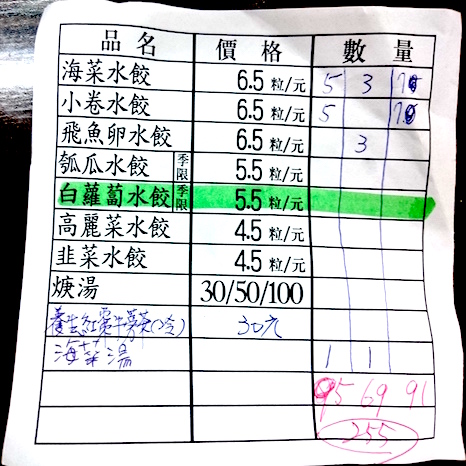 品名 價格 數量
海菜水餃 6.5粒/元 5 3 7
小卷水餃 6.5粒/元 5 7
飛魚卵水餃 6.5粒/元 3
瓠瓜水餃 季限 5.5粒/元
白蘿蔔水餃 季限 5.5粒/元
高麗菜水餃 4.5粒/元
韭菜水餃 4.5粒/元
焿湯 30/50/100
養生紅棗牛蒡茶(冷) 30元
海菜湯 1 1
95 69 91
255